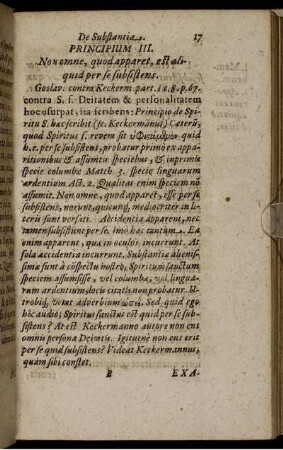 De Substantia. 17
PRINCIPIUM III.
Non omne, quod apparet, est ali-
quid per se subsistens.
Goslav. contra Keckerm. part. 1. c. 8. p. 67.
contra S. s. Deitatem & personalitatem
hoc usurpat, ita scribens: Principio de Spi-
ritu S. hæc scribit (sc. Keckermanus) Caterū,
quod Spiritus s. revera sit ὑφιστάμενον, quid
h. e. per se subsistens, probatur primò ex appa-
ritionibus & assumtis speciebus, & inprimis
specie columbæ Matth. 3. specie linguarum
ardentium Act. 2. Qualitas enim speciem nō
assumit. Non omne, quod apparet, esse per se
subsistens, norunt, quicunq; mediocriter in li-
teris sunt versati. Accidentia apparent, nec
tamen subsistunt per se. Imò hæc tantùm. Ea
enim apparent, quæ in oculos incurrunt. At
sola accidentia incurrunt. Substantiæ alienis-
simæ sunt à cōspectu nostro. Spiritum sanctum
speciem assumsisse, vel columbæ, vel lingua-
rum ardentium, dictis citatis non probatur. U-
trobiq; vetat adverbium ὡσεί. Sed quid ego
hic audio; Spiritus sanctus est quid per se sub-
sistens? At est Keckermanno autore non ens
omnis persona Deitatis. Igitur ne non ens erit
per se quid subsistens? Videat Keckermannus,
quàm sibi constet.
B EXA-